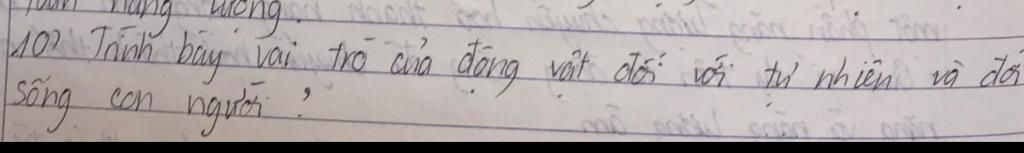 năng lượng.
10) Trình bày vai trò của động vật đối với tự nhiên và đời
sống con người?